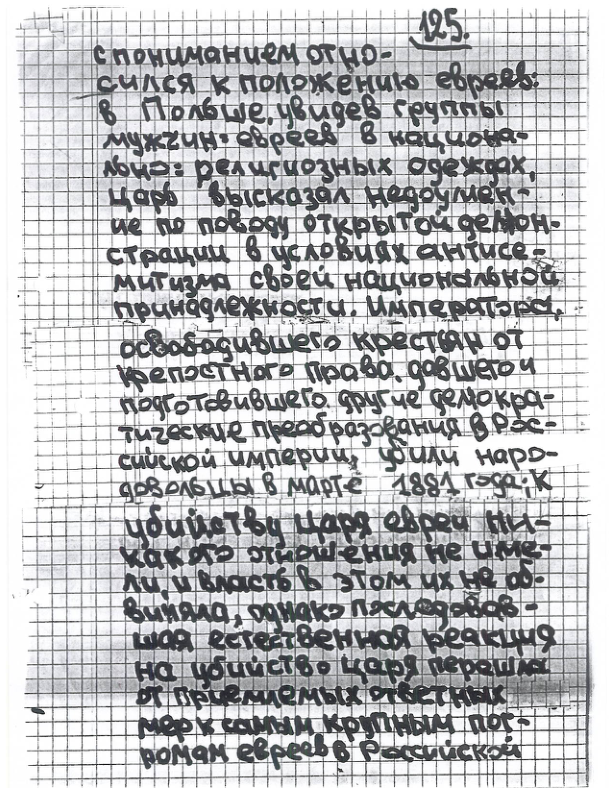 125.
с пониманием отно-
сился к положению евреев:
в Польше, увидев группы
мужчин-евреев в национа-
льно-религиозных одеждах,
царь высказал недоумен-
ие по поводу открытой демон-
страции в условиях антисе-
митизма своей национальной
принадлежности. Императора,
освободившего крестьян от
крепостного права, давшего и
подготовившего другие демокра-
тические преобразования в Рос-
сийской империи, убили наро-
довольцы в марте 1881 года; К
убийству царя евреи ни-
какого отношения не име-
ли, и власть в этом их не об-
виняла, однако последовав-
шая естественная реакция
на убийство царя перешла
от приемлемых ответных
мер к самым крупным пог-
ромам евреев в Российской